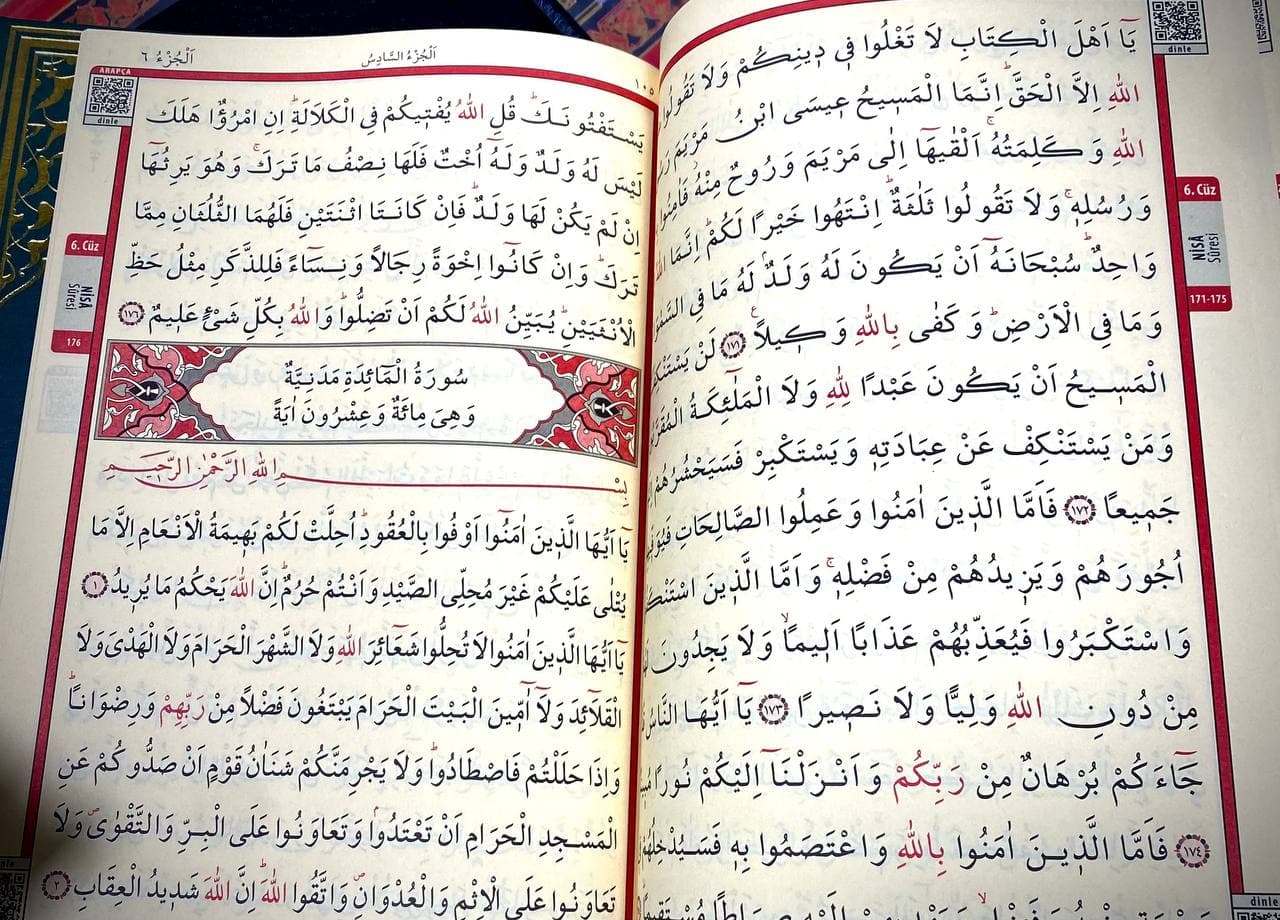 يَٓا اَهْلَ الْكِتَابِ لَا تَغْلُوا ف۪ي د۪ينِكُمْ وَلَا تَقُولُوا
اللّٰهِ اِلَّا الْحَقَّۜ اِنَّمَا الْمَس۪يحُ ع۪يسَى ابْنُ مَرْيَمَ
اللّٰهِ وَكَلِمَتُهُۚ اَلْقٰيهَٓا اِلٰى مَرْيَمَ وَرُوحٌ مِنْهُۘ فَاٰمِنُوا
وَرُسُلِه۪ۚ وَلَا تَقُولُوا ثَلٰثَةٌۜ اِنْتَهُوا خَيْرًا لَكُمْۜ اِنَّمَا
وَاحِدٌۜ سُبْحَانَهُٓ اَنْ يَكُونَ لَهُ وَلَدٌۢ لَهُ مَا فِي
وَمَا فِي الْاَرْضِۜ وَكَفٰى بِاللّٰهِ وَك۪يلًا۟ ﴿١٧١﴾ لَنْ
الْمَس۪يحُ اَنْ يَكُونَ عَبْدًا لِلّٰهِ وَلَا الْمَلٰٓئِكَةُ
وَمَنْ يَسْتَنْكِفْ عَنْ عِبَادَتِه۪ وَيَسْتَكْبِرْ فَسَيَحْشُرُهُمْ
جَم۪يعًا ﴿١٧٢﴾ فَاَمَّا الَّذ۪ينَ اٰمَنُوا وَعَمِلُوا الصَّالِحَاتِ
اُجُورَهُمْ وَيَز۪يدُهُمْ مِنْ فَضْلِه۪ۚ وَاَمَّا الَّذ۪ينَ
وَاسْتَكْبَرُوا فَيُعَذِّبُهُمْ عَذَابًا اَل۪يمًاۙ وَلَا يَجِدُونَ
مِنْ دُونِ اللّٰهِ وَلِيًّا وَلَا نَص۪يرًا ﴿١٧٣﴾ يَٓا اَيُّهَا النَّاسُ
جَٓاءَكُمْ بُرْهَانٌ مِنْ رَبِّكُمْ وَاَنْزَلْنَٓا اِلَيْكُمْ نُورًا
﴿١٧٤﴾ فَاَمَّا الَّذ۪ينَ اٰمَنُوا بِاللّٰهِ وَاعْتَصَمُوا بِه۪ فَسَيُدْخِلُهُمْ
dinle
6. Cüz
NİSÂ
Sûresi
171-175
dinle
اَلْجُزْءُ ٦
اَلْجُزْءُ السَّادِسُ
١٠٥
ARAPÇA
dinle
يَسْتَفْتُونَكَۜ قُلِ اللّٰهُ يُفْت۪يكُمْ فِي الْكَلَالَةِۜ اِنِ امْرُؤٌا هَلَكَ
لَيْسَ لَهُ وَلَدٌ وَلَهُٓ اُخْتٌ فَلَهَا نِصْفُ مَا تَرَكَۚ وَهُوَ يَرِثُهَٓا
اِنْ لَمْ يَكُنْ لَهَا وَلَدٌۜ فَاِنْ كَانَتَا اثْنَتَيْنِ فَلَهُمَا الثُّلُثَانِ مِمَّا
تَرَكَۜ وَاِنْ كَانُٓوا اِخْوَةً رِجَالًا وَنِسَٓاءً فَلِلذَّكَرِ مِثْلُ حَظِّ
الْاُنْثَيَيْنِۜ يُبَيِّنُ اللّٰهُ لَكُمْ اَنْ تَضِلُّواۜ وَاللّٰهُ بِكُلِّ شَيْءٍ عَل۪يمٌ ﴿١٧٦﴾
سُورَةُ الْمَائِدَةِ مَدَنِيَّةٌ
وَهِيَ مِائَةٌ وَعِشْرُونَ اٰيَةً
بِسْمِ اللّٰهِ الرَّحْمٰنِ الرَّح۪يمِ
يَٓا اَيُّهَا الَّذ۪ينَ اٰمَنُٓوا اَوْفُوا بِالْعُقُودِۜ اُحِلَّتْ لَكُمْ بَه۪يمَةُ الْاَنْعَامِ اِلَّا مَا
يُتْلٰى عَلَيْكُمْ غَيْرَ مُحِلِّي الصَّيْدِ وَاَنْتُمْ حُرُمٌۜ اِنَّ اللّٰهَ يَحْكُمُ مَا يُر۪يدُ ﴿١﴾
يَٓا اَيُّهَا الَّذ۪ينَ اٰمَنُوا لَا تُحِلُّوا شَعَٓائِرَ اللّٰهِ وَلَا الشَّهْرَ الْحَرَامَ وَلَا الْهَدْيَ وَلَا
الْقَلَٓائِدَ وَلَٓا اٰمّ۪ينَ الْبَيْتَ الْحَرَامَ يَبْتَغُونَ فَضْلًا مِنْ رَبِّهِمْ وَرِضْوَانًاۜ
وَاِذَا حَلَلْتُمْ فَاصْطَادُواۜ وَلَا يَجْرِمَنَّكُمْ شَنَاٰنُ قَوْمٍ اَنْ صَدُّوكُمْ عَنِ
الْمَسْجِدِ الْحَرَامِ اَنْ تَعْتَدُواۢ وَتَعَاوَنُوا عَلَى الْبِرِّ وَالتَّقْوٰىۖ وَلَا
تَعَاوَنُوا عَلَى الْاِثْمِ وَالْعُدْوَانِۖ وَاتَّقُوا اللّٰهَۜ اِنَّ اللّٰهَ شَد۪يدُ الْعِقَابِ ﴿٢﴾
6. Cüz
NİSÂ
Sûresi
176
dinle